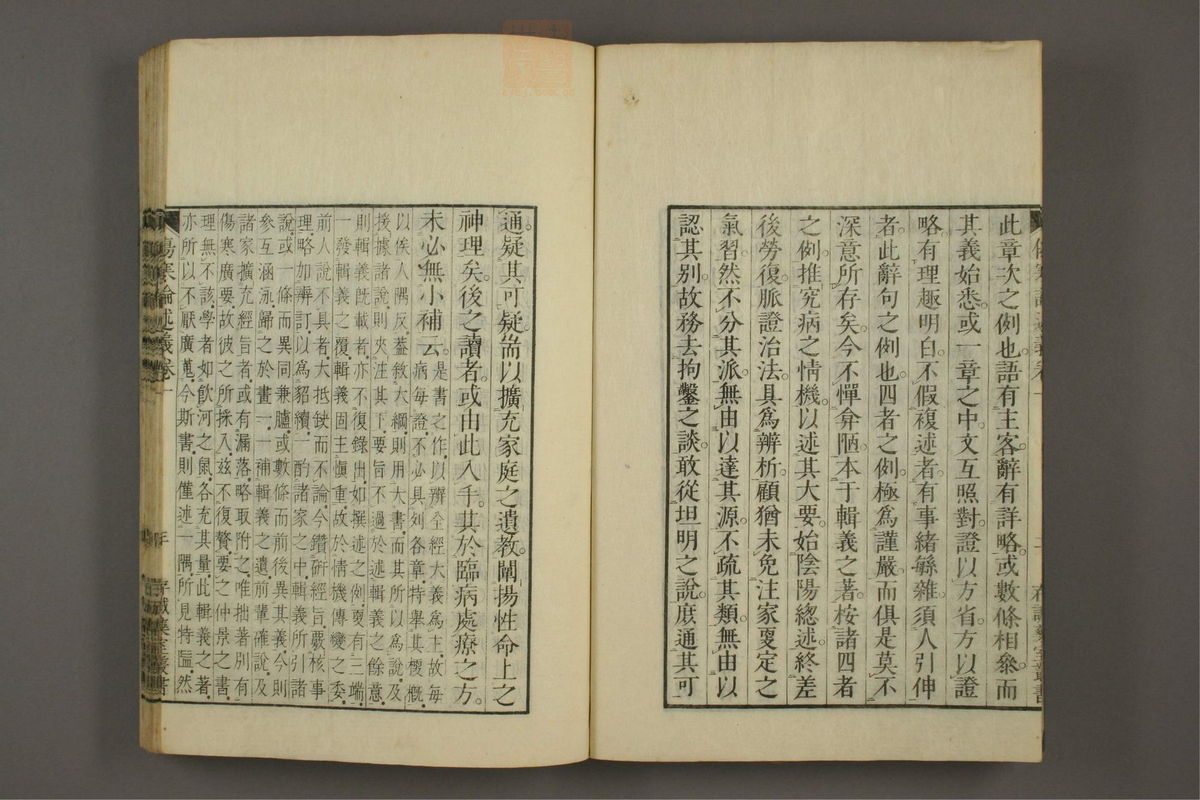 此章次之例也。語有主客。辭有詳略。或數條相參而
其義始悉。或一章之中。文互照對。證以方省。方以證
略。有理趣明白。不假複述者。有事緒緐雜。須人引伸
者。此辭句之例也。四者之例。極爲謹嚴。而俱是莫不
深意所存矣。今不憚弇陋。本于輯義之著。桉諸四者
之例。推究病之情機。以述其大要。始陰陽總述。終差
後勞復。脈證治法。具爲辨析。顧猶未免注家更定之
氣習。然不分其派。無由以達其源。不疏其類。無由以
認其別。故務去拘鑿之談。敢從坦明之說。庶通其可
通。疑其可疑。耑以擴充家庭之遺教。闡揚性命上之
神理矣。後之讀者。或由此入手。其於臨病處療之方。
未必無小補云。
是書之作。以辨全經大義爲主。故每
病每證。不必具列各章。特舉其槩概。
以俟人隅反。葢敘大綱。則用大書。而其所以爲說。及
援據諸說。則夾注其下。要旨不過於述輯義之餘意。
則輯義既載者。亦不復錄出。如撰述之例。更有三端。
一發輯義之覆。輯義固主愼重。故於情機傳變之委。
前人說不具者。大抵銊而不論。今鑽硏經旨。覈核事
理。略加辨訂。以爲貂續。一酌諸家之中。輯義所引諸
說。或一條而異同兼臚。或數條而前後異其義。今則
參互涵泳。歸之於畫一。一補輯義之遺。前輩確說。及
諸家擴充經旨者。或有漏落。略取附之。唯拙著別有
傷寒廣要。故彼之所採入。茲不復贅。要之仲景之書。
理無不該。學者如飮河之鼠。各充其量。此輯義之著。
亦所以不厭廣蒐。今斯書。則僅述一隅所見。特䀋然
傷寒論述義卷一
存誠藥室叢書